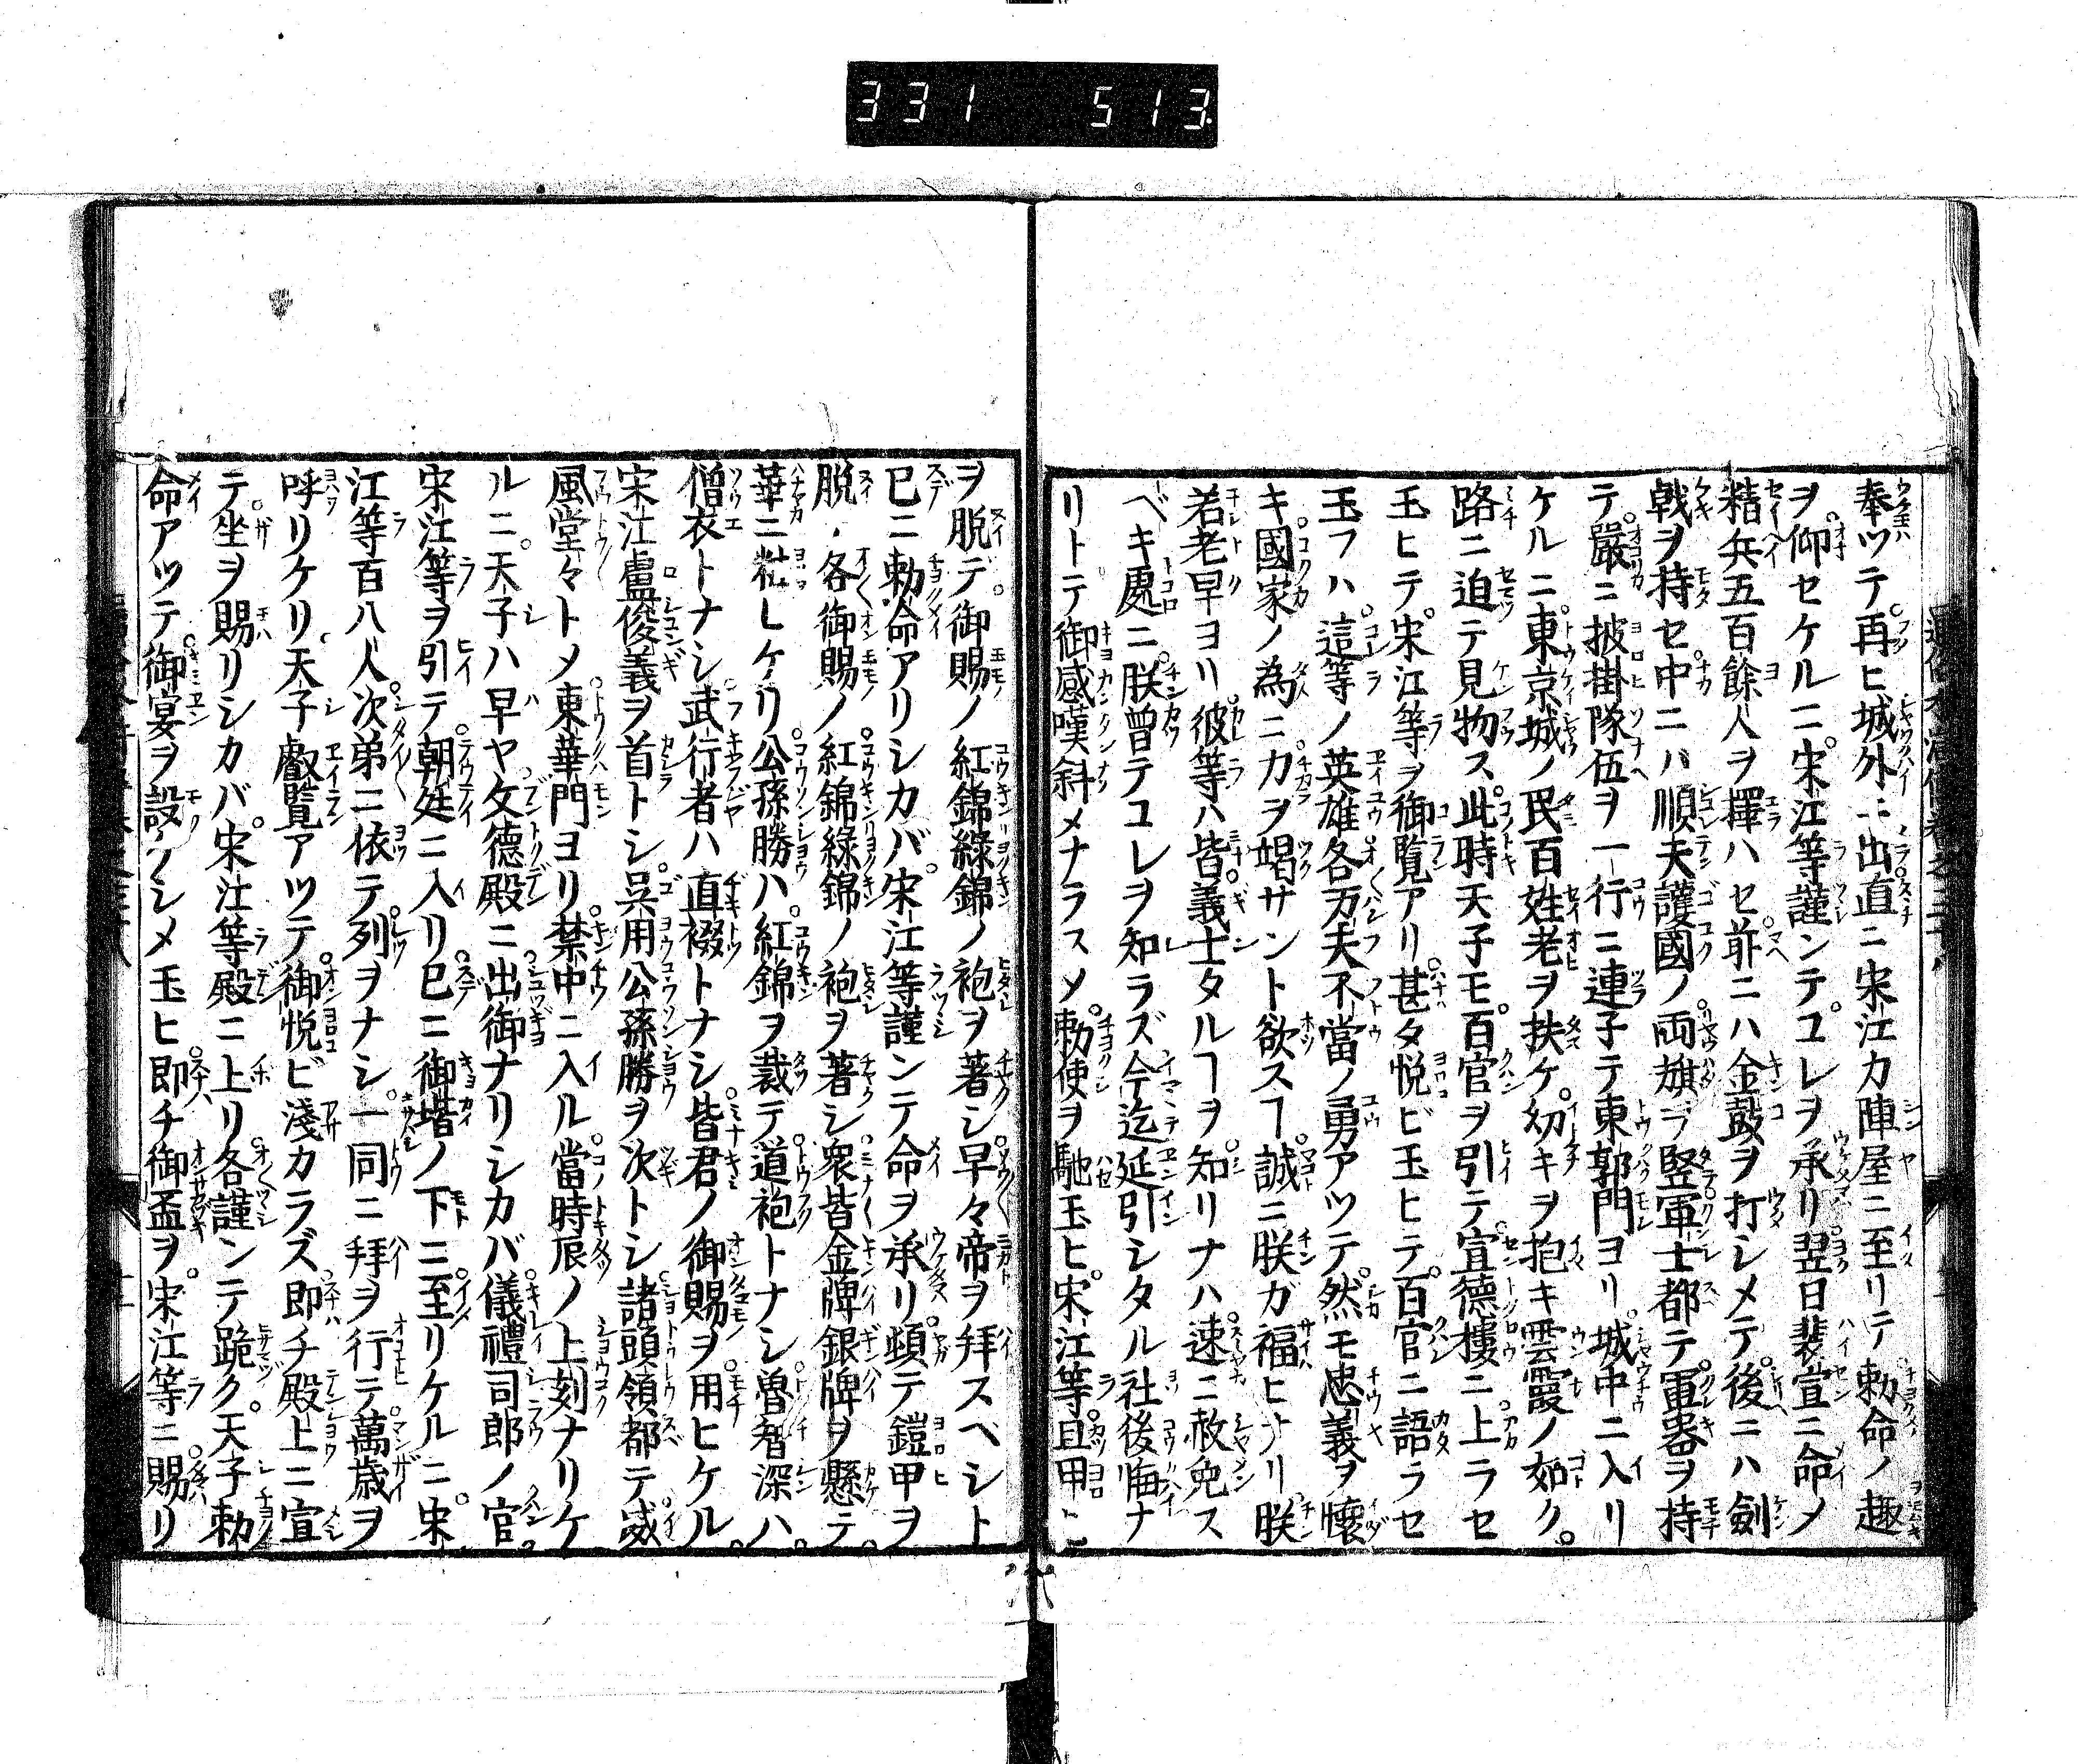 331 513.
奉ツテ再ヒ城外ニ出直ニ宋江カ陣屋ニ至リテ勅命ノ趣
ヲ仰セケルニ宋江等謹ンテコレヲ承リ翌日裴宣ニ命メ
精兵五百餘人ヲ擇ハセ前ニハ金鼓ヲ打シメテ後ニハ劍
戟ヲ持セ中ニハ順天護國ノ両旗ヲ竪軍士都テ軍器ヲ持
テ嚴ニ披掛隊伍ヲ一行ニ連子テ東郭門ヨリ城中ニ入リ
ケルニ東京城ノ民百姓老ヲ扶ケ幼キヲ抱キ雲霞ノ如ク。
路ニ迫テ見物ス此時天子モ百官ヲ引テ宣德樓ニ上ラセ
玉ヒテ宋江等ヲ御覽アリ甚タ悦ビ玉ヒテ百官ニ語ラセ
玉フハ這等ノ英雄各万夫不當ノ勇アツテ然モ忠義ヲ懷
キ國家ノ為ニ力ヲ竭サント欲スヿ誠ニ朕ガ福ヒナリ朕
若老早ヨリ彼等ハ皆義士タルヿヲ知リナハ速ニ赦免ス
ベキ處ニ朕曾テコレヲ知ラズ今迄延引シタル社後悔ナ
リトテ御感嘆斜メナラスメ勅使ヲ馳玉ヒ宋江等且甲
ヲ脱デ御賜ノ紅錦綠錦ノ袍ヲ著シ早々帝ヲ拜スベシト
已ニ勅命アリシカバ宋江等謹ンテ命ヲ承リ頓テ鎧甲ヲ
脱各御賜ノ紅錦綠錦ノ袍ヲ著シ衆皆金牌銀牌ヲ懸テ
華ニ粧レケリ公孫勝ハ紅錦ヲ裁テ道袍トナシ魯智深ハ
僧衣トナシ武行者ハ直裰トナシ皆君ノ御賜ヲ用ヒケル。
宋江盧俊義ヲ首トシ吳用公孫勝ヲ次トシ諸頭領都テ威
風堂々トメ東華門ヨリ禁中ニ入ル當時辰ノ上刻ナリケ
ルニ天子ハ早ヤ文德殿ニ出御ナリシカバ儀禮司郎ノ官
宋江等ヲ引テ朝廷ニ入リ已ニ御堦ノ下ニ至リケルニ宋
江等百八人次弟ニ依テ列ヲナシ一同ニ拜ヲ行テ萬歳ヲ
呼リケリ天子叡覽アツテ御悦ビ淺カラズ即チ殿上ニ宣
テ坐ヲ賜リシカバ宋江等殿ニ上リ各謹ンテ跪ク天子勅
命アツテ御宴ヲ設ケシメ玉ヒ即チ御盃ヲ宋江等ニ賜リ